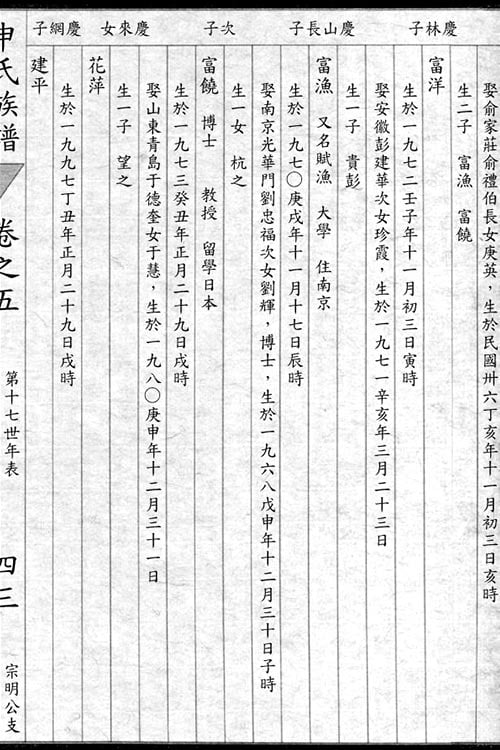 娶俞家莊俞禮伯長女庚英，生於民國卅六丁亥年十一月初三日亥時
生二子 富漁 富饒
慶林子
富洋
生於一九七二壬子年十一月初三日寅時
娶安徽彭建華次女珍霞，生於一九七一辛亥年三月二十三日
生一子 貴彭
慶山長子
富漁 又名賦漁 大學 住南京
生於一九七〇庚戌年十一月十七日辰時
娶南京光華門劉忠福次女劉輝，博士，生於一九六八戊申年十二月三十日子時
生一女 杭之
次子
富饒 博士 教授 留學日本
生於一九七三癸丑年正月二十九日戌時
娶山東青島于德奎女于慧，生於一九八〇庚申年十二月三十一日
生一子 望之
慶來女
花萍
生於一九九七丁丑年正月二十九日戌時
慶網子
建平
申氏族譜
卷之五
第十七世年表
四三
宗明公支